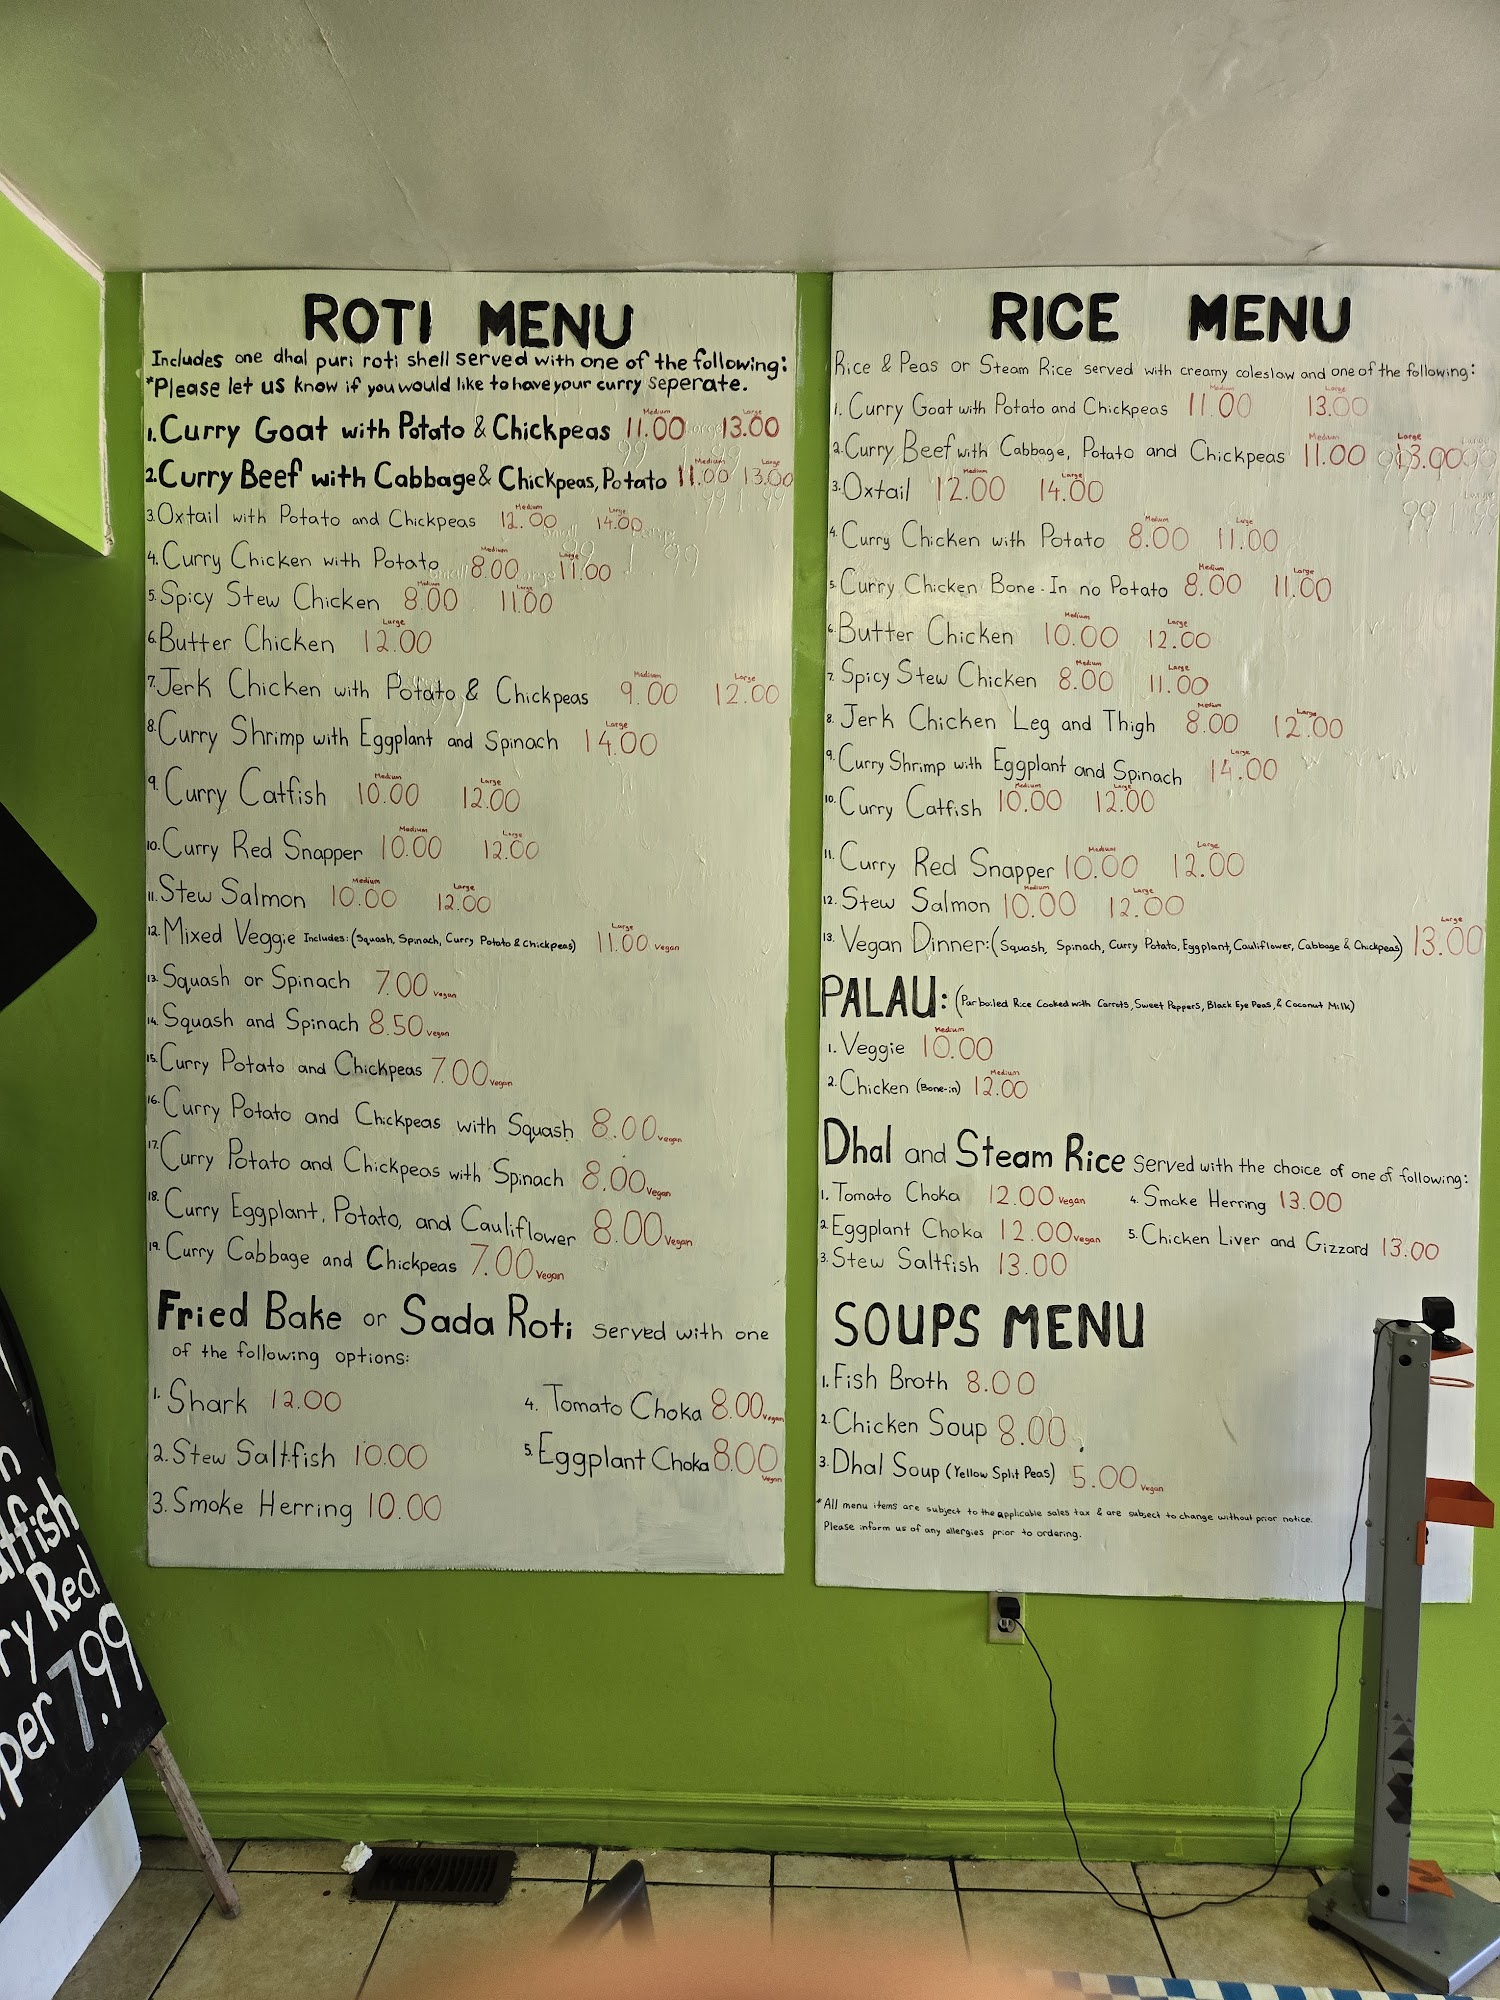 ROTI MENU
Includes one dhal puri roti shell served with one of the following:
*Please let us know if you would like to have your curry seperate.
1. Curry Goat with Potato & Chickpeas Medium 11.00 Large 13.00
2. Curry Beef with Cabbage & Chickpeas, Potato Medium 11.00 Large 13.00
3. Oxtail with Potato and Chickpeas Medium 12.00 Large 14.00
4. Curry Chicken with Potato Medium 8.00 Large 11.00
5. Spicy Stew Chicken Medium 8.00 Large 11.00
6. Butter Chicken Large 12.00
7. Jerk Chicken with Potato & Chickpeas Medium 9.00 Large 12.00
8. Curry Shrimp with Eggplant and Spinach Large 14.00
9. Curry Catfish Medium 10.00 Large 12.00
10. Curry Red Snapper Medium 10.00 Large 12.00
11. Stew Salmon Medium 10.00 Large 12.00
12. Mixed Veggie Includes: (Squash, Spinach, Curry Potato & Chickpeas) Large 11.00 Vegan
13. Squash or Spinach 7.00 Vegan
14. Squash and Spinach 8.50 Vegan
15. Curry Potato and Chickpeas 7.00 Vegan
16. Curry Potato and Chickpeas with Squash 8.00 Vegan
17. Curry Potato and Chickpeas with Spinach 8.00 Vegan
18. Curry Eggplant, Potato, and Cauliflower 8.00 Vegan
19. Curry Cabbage and Chickpeas 7.00 Vegan
Fried Bake or Sada Roti Served with one
of the following options:
1. Shark 12.00
2. Stew Saltfish 10.00
3. Smoke Herring 10.00
4. Tomato Choka 8.00 Vegan
5. Eggplant Choka 8.00 Vegan
RICE MENU
Rice & Peas or Steam Rice served with creamy coleslaw and one of the following:
1. Curry Goat with Potato and Chickpeas Medium 11.00 Large 13.00
2. Curry Beef with Cabbage, Potato and Chickpeas Medium 11.00 Large 13.00
3. Oxtail Medium 12.00 Large 14.00
4. Curry Chicken with Potato Medium 8.00 Large 11.00
5. Curry Chicken Bone-In no Potato Medium 8.00 Large 11.00
6. Butter Chicken Medium 10.00 Large 12.00
7. Spicy Stew Chicken Medium 8.00 Large 11.00
8. Jerk Chicken Leg and Thigh Medium 8.00 Large 12.00
9. Curry Shrimp with Eggplant and Spinach Large 14.00
10. Curry Catfish Medium 10.00 Large 12.00
11. Curry Red Snapper Medium 10.00 Large 12.00
12. Stew Salmon Medium 10.00 Large 12.00
13. Vegan Dinner: (Squash, Spinach, Curry Potato, Eggplant, Cauliflower, Cabbage & Chickpeas) Large 13.00
PALAU: (Parboiled Rice Cooked with Carrots, Sweet Peppers, Black Eye Peas, & Coconut Milk)
1. Veggie Medium 10.00
2. Chicken (Bone-in) Medium 12.00
Dhal and Steam Rice Served with the choice of one of following:
1. Tomato Choka 12.00 Vegan
2. Eggplant Choka 12.00 Vegan
3. Stew Saltfish 13.00
4. Smoke Herring 13.00
5. Chicken Liver and Gizzard 13.00
SOUPS MENU
1. Fish Broth 8.00
2. Chicken Soup 8.00
3. Dhal Soup (Yellow Split Peas) 5.00 Vegan
*All menu items are subject to the applicable sales tax & are subject to change without prior notice.
Please inform us of any allergies prior to ordering.
Red
7.99